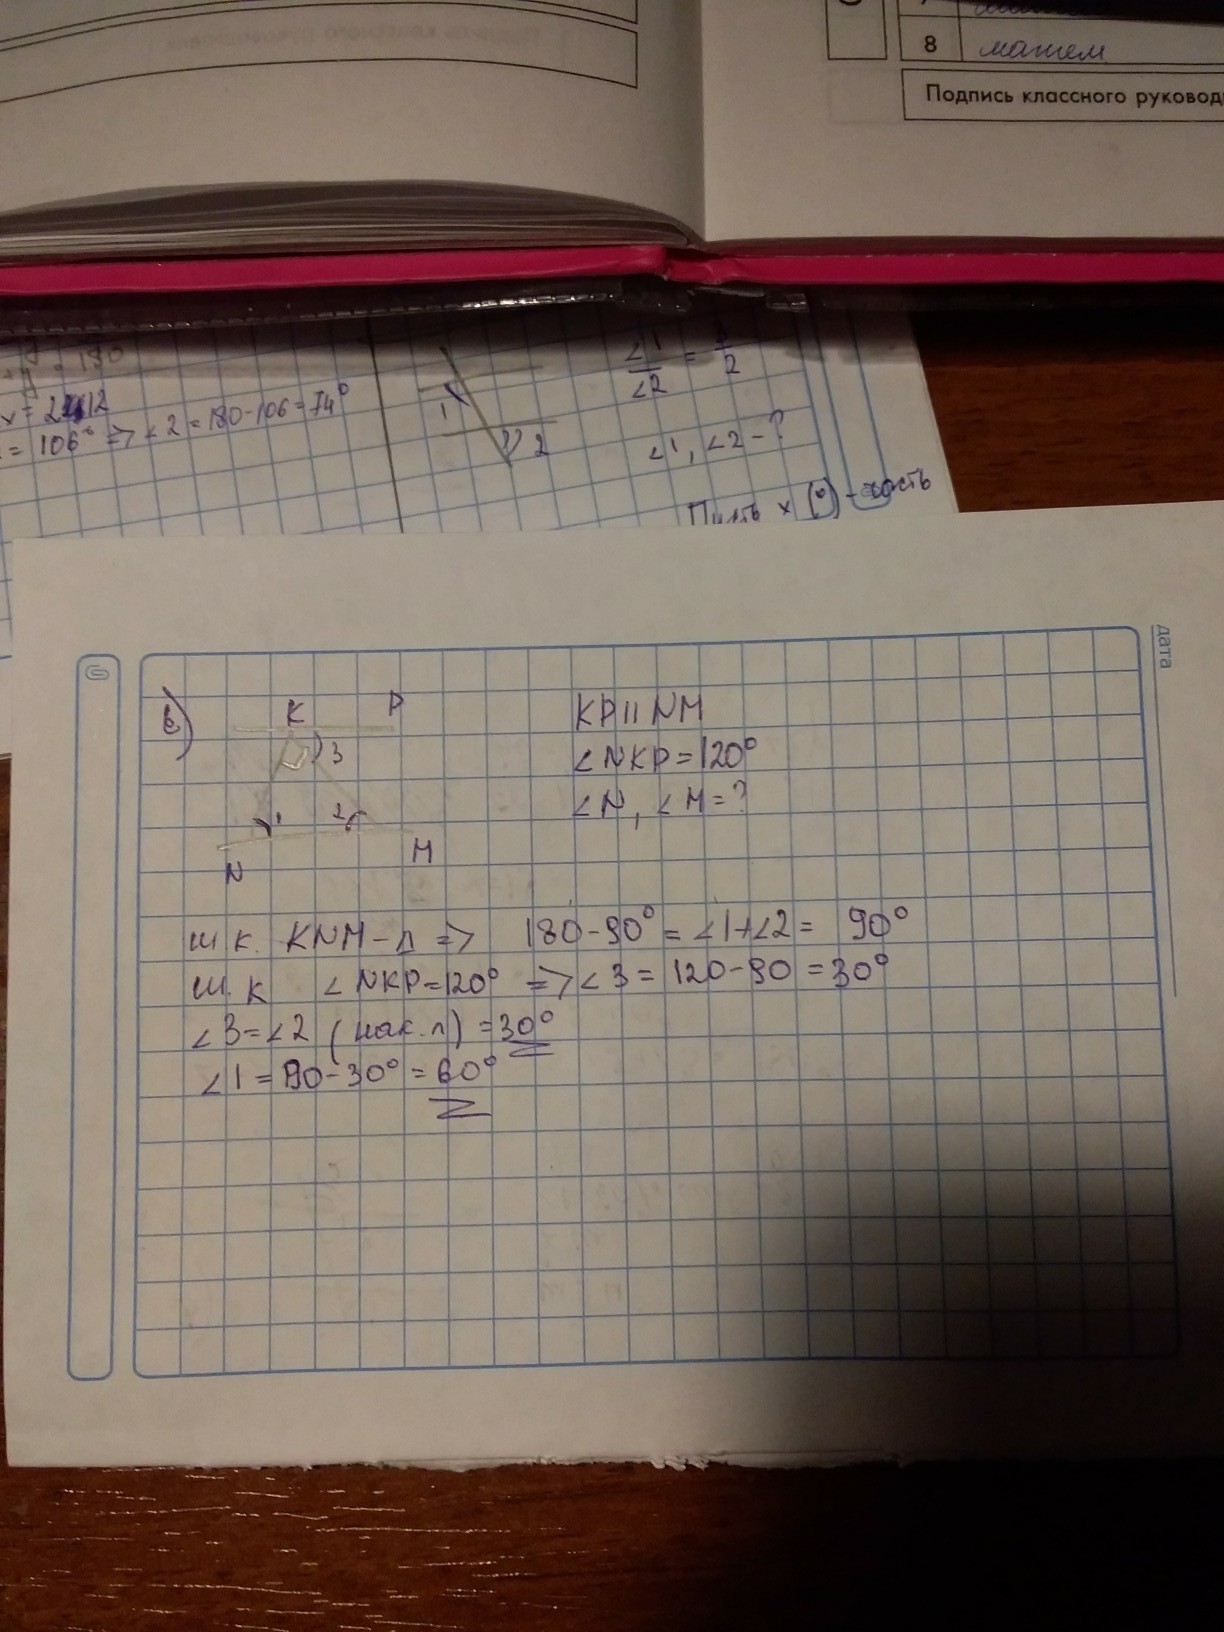 8 матем
Подпись классного руковод
= 180
x = 2 112
= 106° => ∠2 = 180-106 = 74°
1
2
∠1
∠2
=
2
∠1, ∠2 - ?
Пусть x (°) - часть
дата
в)
K P
3
1 2
N M
KP || NM
∠NKP = 120°
∠N, ∠M = ?
т.к. KNM - Δ => 180-90° = ∠1+∠2 = 90°
т.к ∠NKP = 120° => ∠3 = 120-90 = 30°
∠3 = ∠2 (нак.л) = 30°
∠1 = 90-30° = 60°